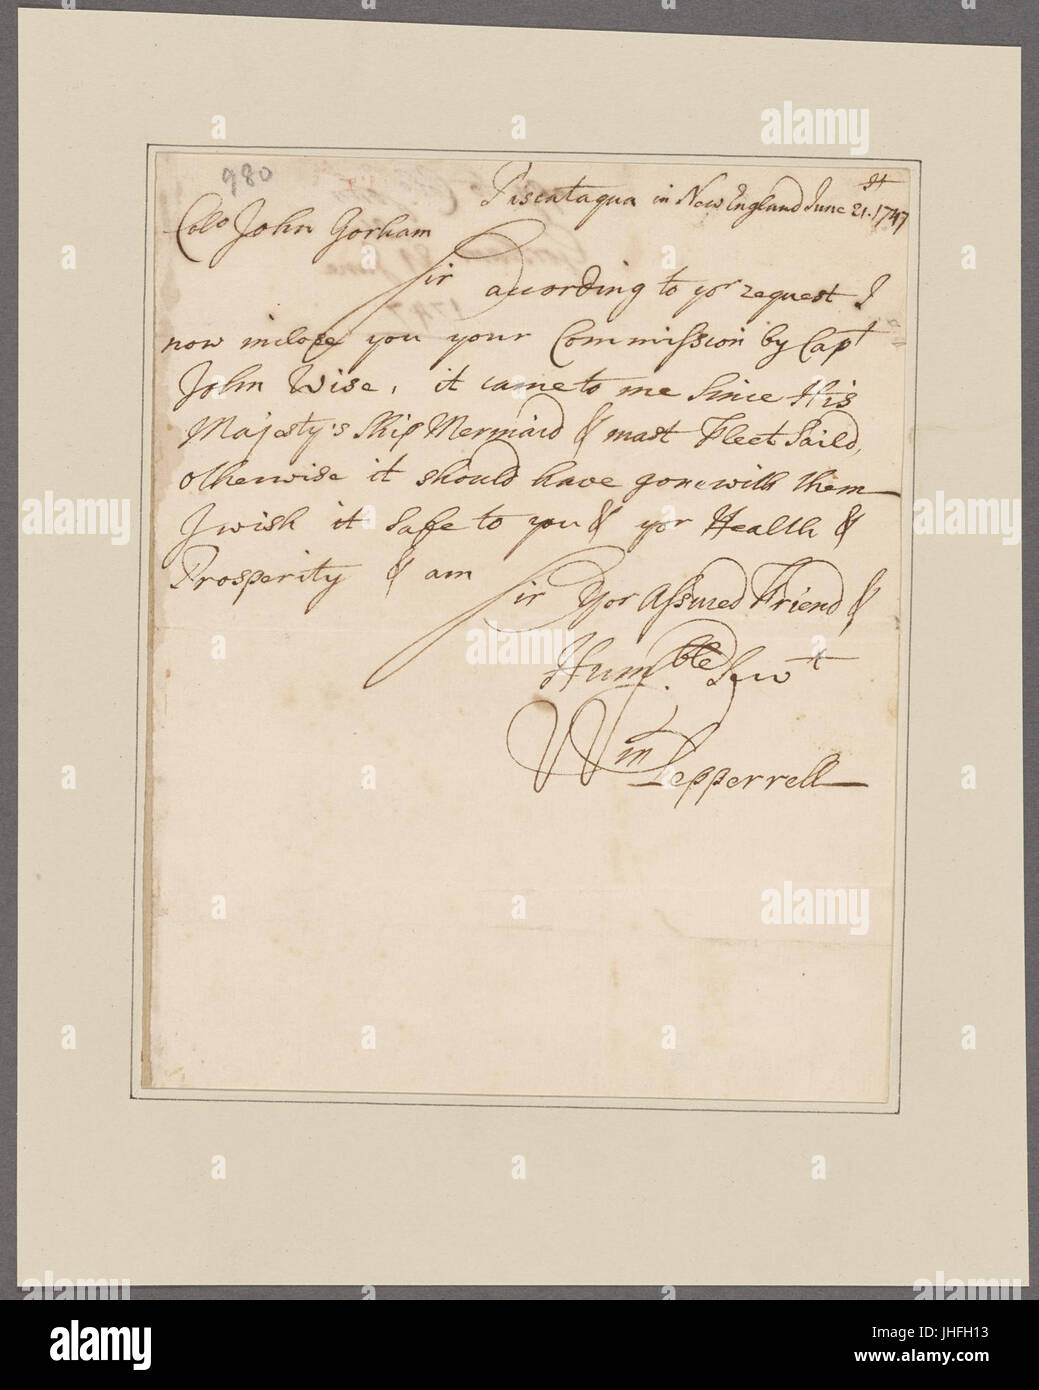 980
Piscataqua in New England June 21.st 1747
Colo John Gorham
Sir according to yor request I
now inclose you your Commission by Capt
John Wise, it came to me since His
Majesty's Ship Mermaid & mast Fleet Saild,
otherwise it should have gone with them
I wish it safe to you & yor Health &
Prosperity & am
Sir Yor Assured Friend &
Humble Servt
Wm Pepperrell
1747
alamy
a
alamy stock photo
JHFH13
www.alamy.com